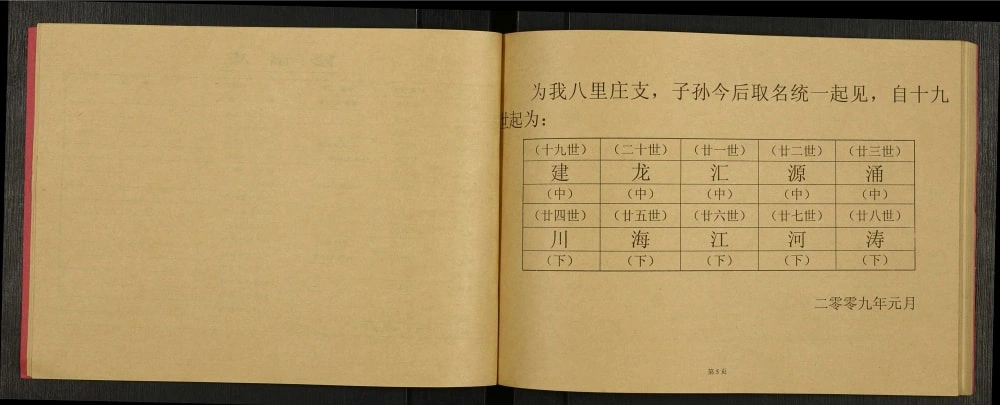 为我八里庄支，子孙今后取名统一起见，自十九
世起为：
（十九世） （二十世） （廿一世） （廿二世） （廿三世）
建 龙 汇 源 涌
（中） （中） （中） （中） （中）
（廿四世） （廿五世） （廿六世） （廿七世） （廿八世）
川 海 江 河 涛
（下） （下） （下） （下） （下）
二零零九年元月
第 8 页